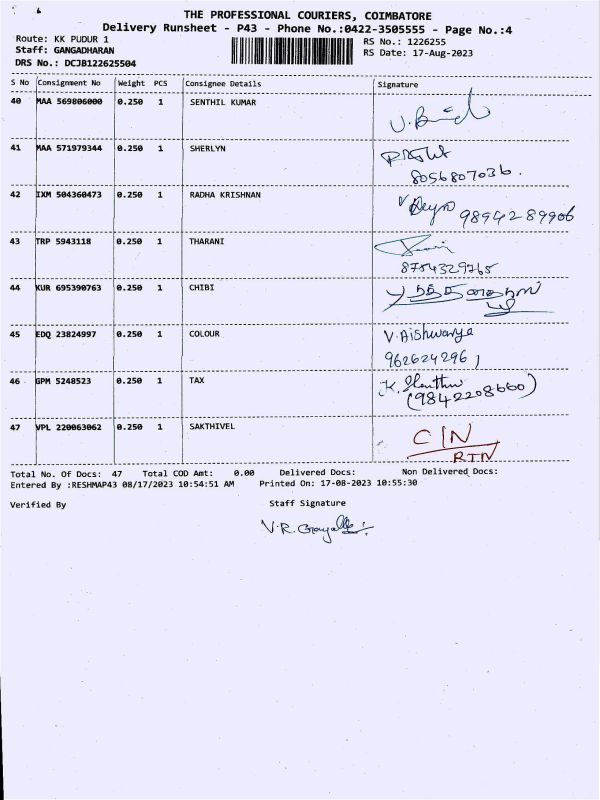 THE PROFESSIONAL COURIERS, COIMBATORE
Delivery Runsheet - P43 - Phone No.:0422-3505555 - Page No.:4
Route: KK PUDUR 1 RS No.: 1226255
Staff: GANGADHARAN RS Date: 17-Aug-2023
DRS No.: DCJB122625504
S No Consignment No Weight PCS Consignee Details Signature
40 MAA 569806000 0.250 1 SENTHIL KUMAR
41 MAA 571979344 0.250 1 SHERLYN
8056807036.
42 IXM 504360473 0.250 1 RADHA KRISHNAN 9894289906
43 TRP 5943118 0.250 1 THARANI
8754329765
44 KUR 695390763 0.250 1 CHIBI
45 EDQ 23824997 0.250 1 COLOUR V. Aishwarya
9626242961
46 GPM 5248523 0.250 1 TAX
(9842208660)
47 VPL 220063062 0.250 1 SAKTHIVEL C/N
RTN
Total No. Of Docs: 47 Total COD Amt: 0.00 Delivered Docs: Non Delivered Docs:
Entered By :RESHMAP43 08/17/2023 10:54:51 AM Printed On: 17-08-2023 10:55:30
Verified By Staff Signature